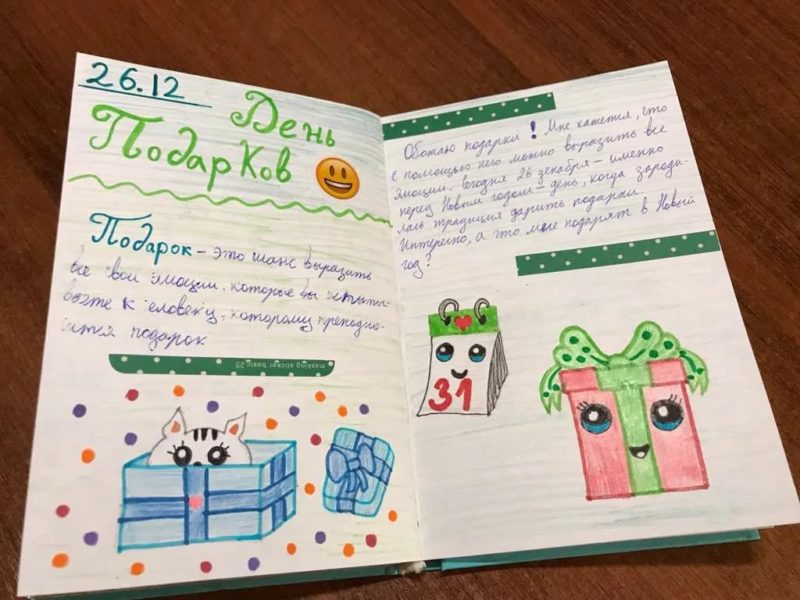 26.12
День
Подарков
Подарок - это шанс выразить
все свои эмоции, которые вы испыты-
ваете к человеку, которому преподно-
сится подарок
masking sticker basic 25
Обожаю подарки! Мне кажется, что
с помощью него можно выразить все
эмоции. Сегодня 26 декабря - именно
перед Новым годом - день, когда зароди-
лась традиция дарить подарки.
Интересно, а что мне подарят в Новый
год?
31